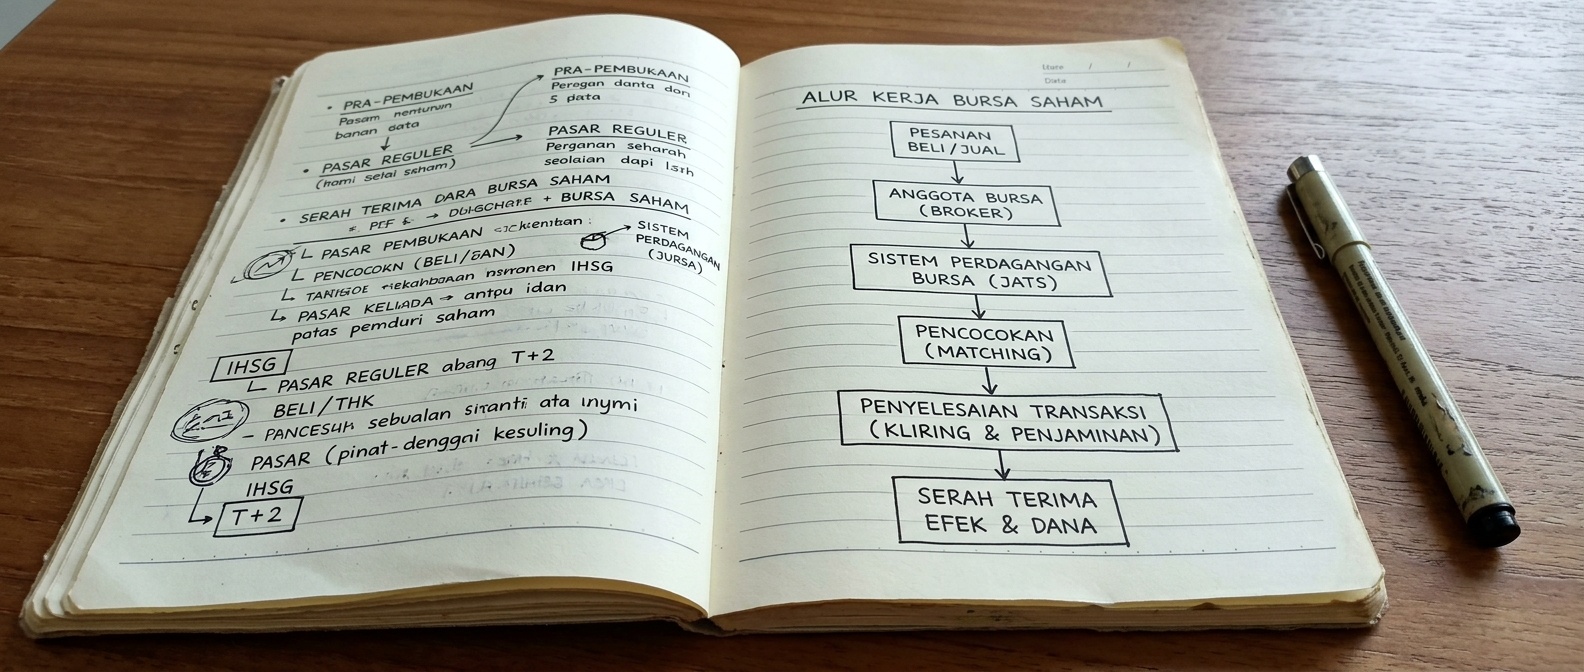 • PRA-PEMBUKAAN
Pasam
banan data
• PASAR REGULER
(homi selai saham)
PRA-PEMBUKAAN
Perogan danta don
5 data
PASAR REGULER
Perganan seharah
seolaian dapi
• SERAH TERIMA DARA BURSA SAHAM
→ + BURSA SAHAM
PASAR PEMBUKAAN
SISTEM
PERDAGANGAN
(JURSA)
PENCOCOKN
IHSG
PASAR → antpu idan
patas pemduri saham
IHSG
PASAR REGULER abang T+2
BELI/THK
– sebualan ata
PASAR (pinat-denggai kesuling)
IHSG
T+2
Date / /
Data
ALUR KERJA BURSA SAHAM
PESANAN
BELI/JUAL
ANGGOTA BURSA
(BROKER)
SISTEM PERDAGANGAN
BURSA (JATS)
PENCOCOKAN
(MATCHING)
PENYELESAIAN TRANSAKSI
(KLIRING & PENJAMINAN)
SERAH TERIMA
EFEK & DANA